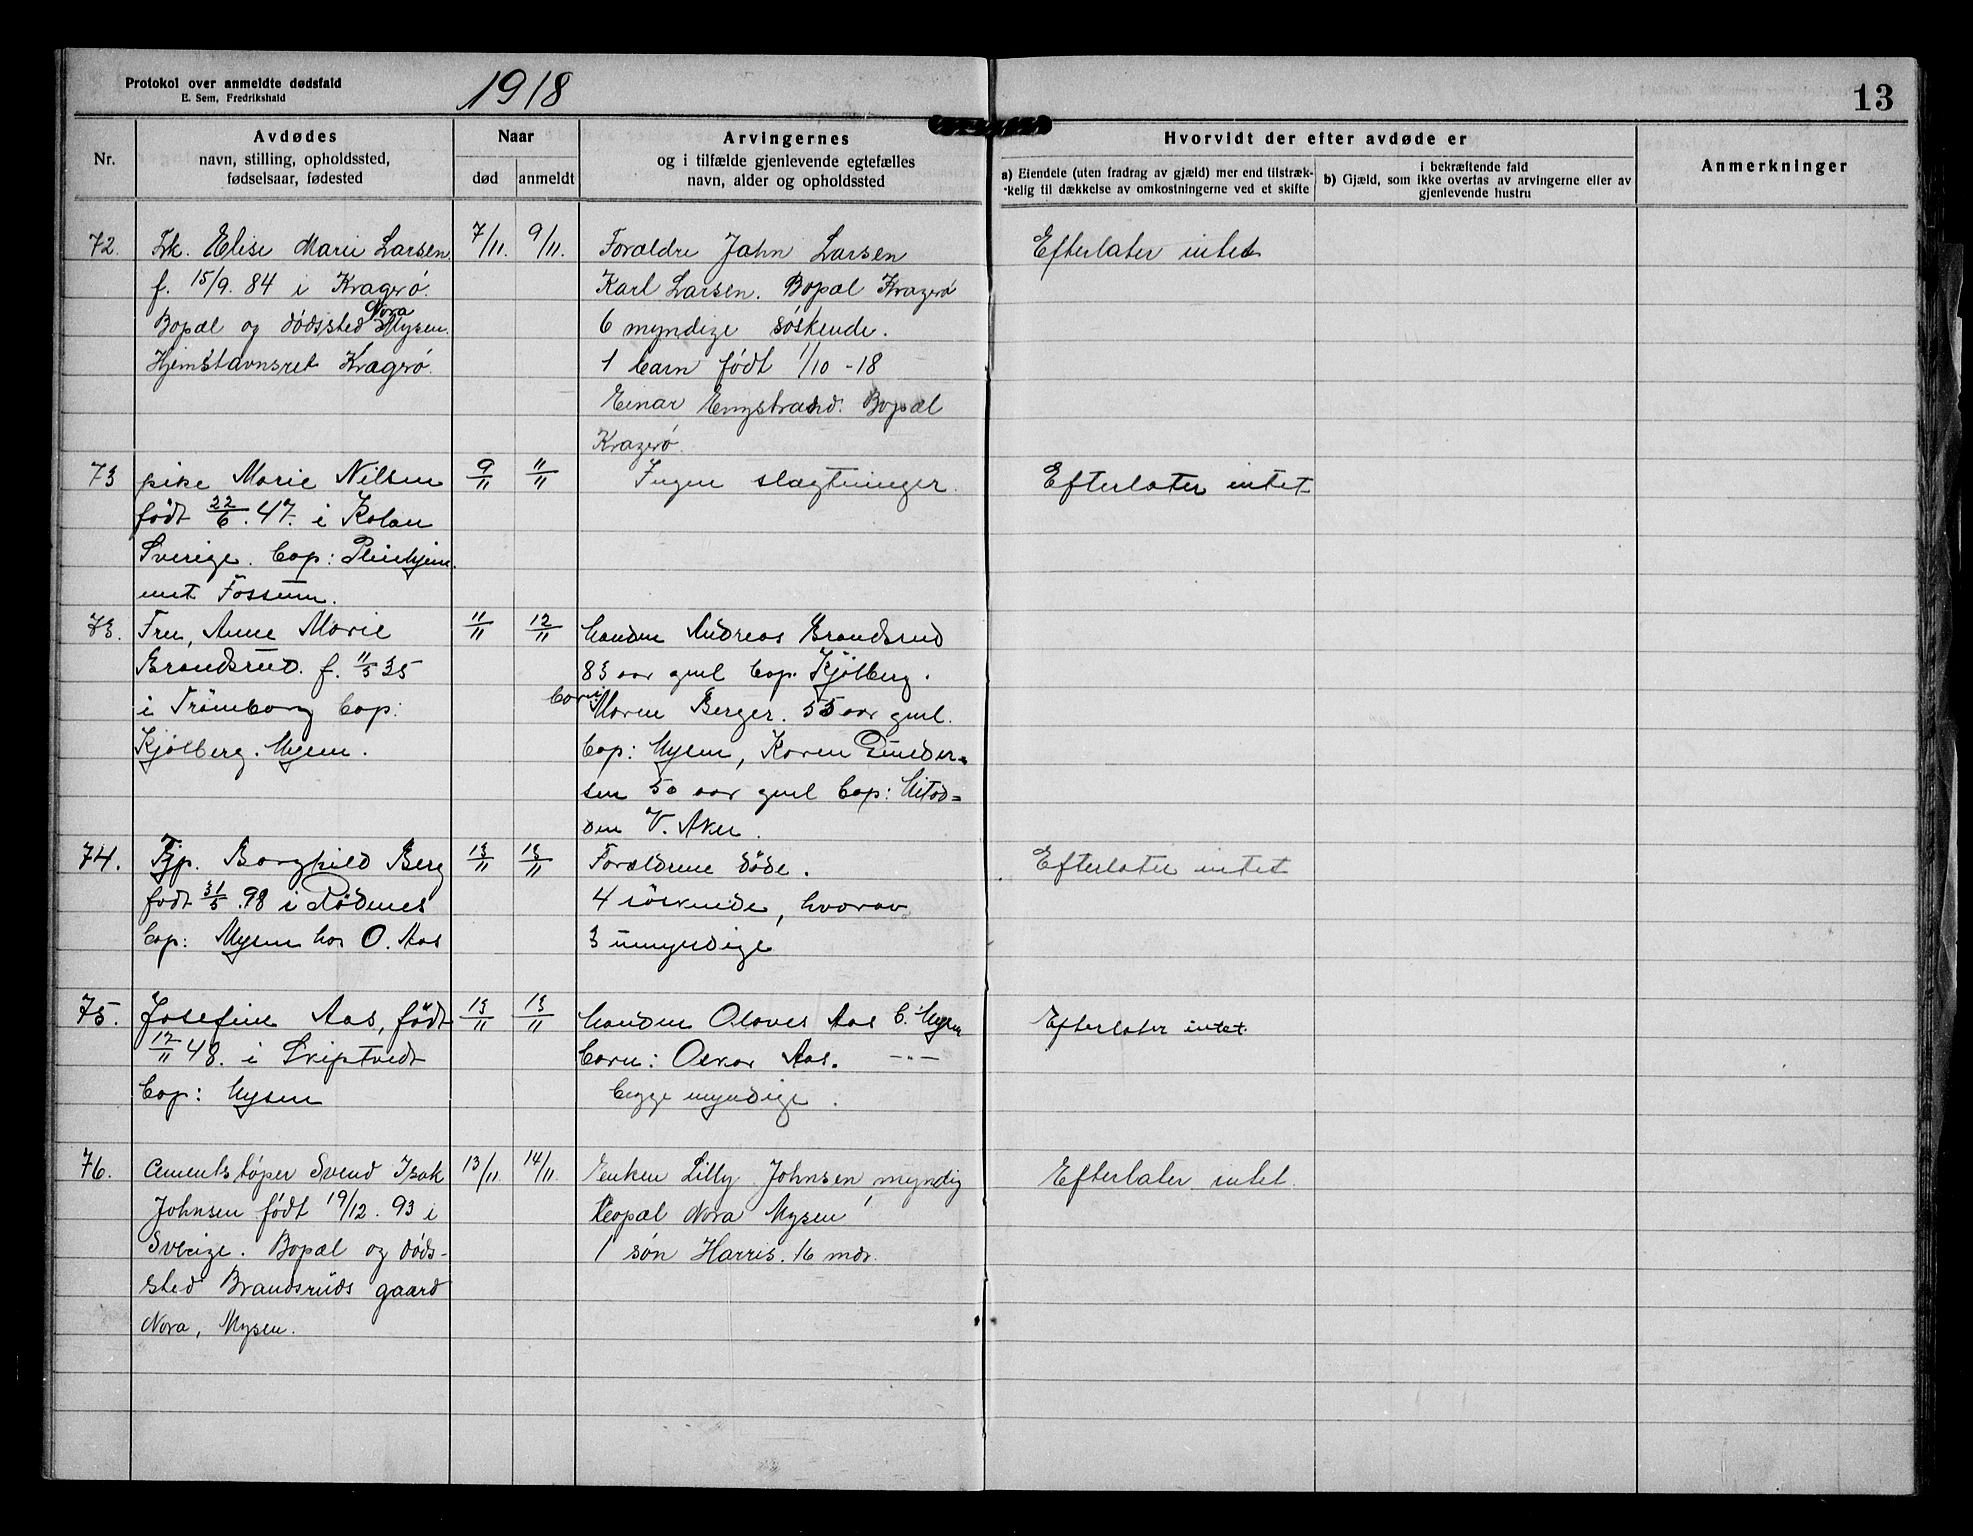 Protokol over anmeldte dødsfald
E. Sem, Fredrikshald
1918
13
Nr.
Avdødes
navn, stilling, opholdssted,
fødselsaar, fødested
Naar
død
anmeldt
Arvingernes
og i tilfælde gjenlevende egtefælles
navn, alder og opholdssted
Hvorvidt der efter avdøde er
a) Eiendele (uten fradrag av gjæld) mer end tilstræk-
kelig til dækkelse av omkostningerne ved et skifte
i bekræftende fald
b) Gjæld, som ikke overtas av arvingerne eller av
gjenlevende hustru
Anmerkninger
72.
Frk. Elise Marie Larsen
f. 15/9. 84 i Kragerø.
Bopæl og dødssted Nora Mysen.
Hjemstavnsret Kragerø.
7/11.
9/11.
Forældre Jahn Larsen
Karl Larsen. Bopæl Kragerø
6 myndige søskende.
1 barn født 1/10 -18
Einar Engstrand. Bopæl
Kragerø.
Efterlater intet
73
pike Marie Nilsen
født 22/6. 47. i Kolan
Sverige. bop: Pleiehjem-
met Fossum.
9/11
11/11
Ingen slægtninger.
Efterlater intet
73.
Fru, Anne Marie
Brandsrud. f. 11/5 35
i Trømborg bop:
Kjølberg. Mysen.
11/11
12/11
Manden Andreas Brandsrud
83 aar gml bop. Kjølberg.
barn Maren Berger. 55 aar gml.
bop: Mysen, Karen Gunder-
sen 50 aar gml bop:
den V. Aker.
74.
Tjp. Borghild Berg
født 31/5. 98 i Rødenes
bop: Mysen hos O. Aas
13/11
13/11
Forældrene døde.
4 søskende, hvorav
3 umyndige
Efterlater intet
75.
Josefine Aas, født
12/11 48. i Skiptvedt
bop: Mysen
13/11
13/11
Manden Olaves Aas b. Mysen
barn: Oskar Aas. -"-
begge myndige.
Efterlater intet.
76.
Cementstøper Svend Isak
Johnsen født 19/12. 93 i
Sverige. Bopæl og døds-
sted Brandsruds gaard
Nora, Mysen.
13/11
14/11.
Enken Lilly Johnsen, myndig
Bopæl Nora Mysen
1 søn Harris. 16 mdr.
Efterlater intet.